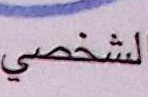 لشخصي